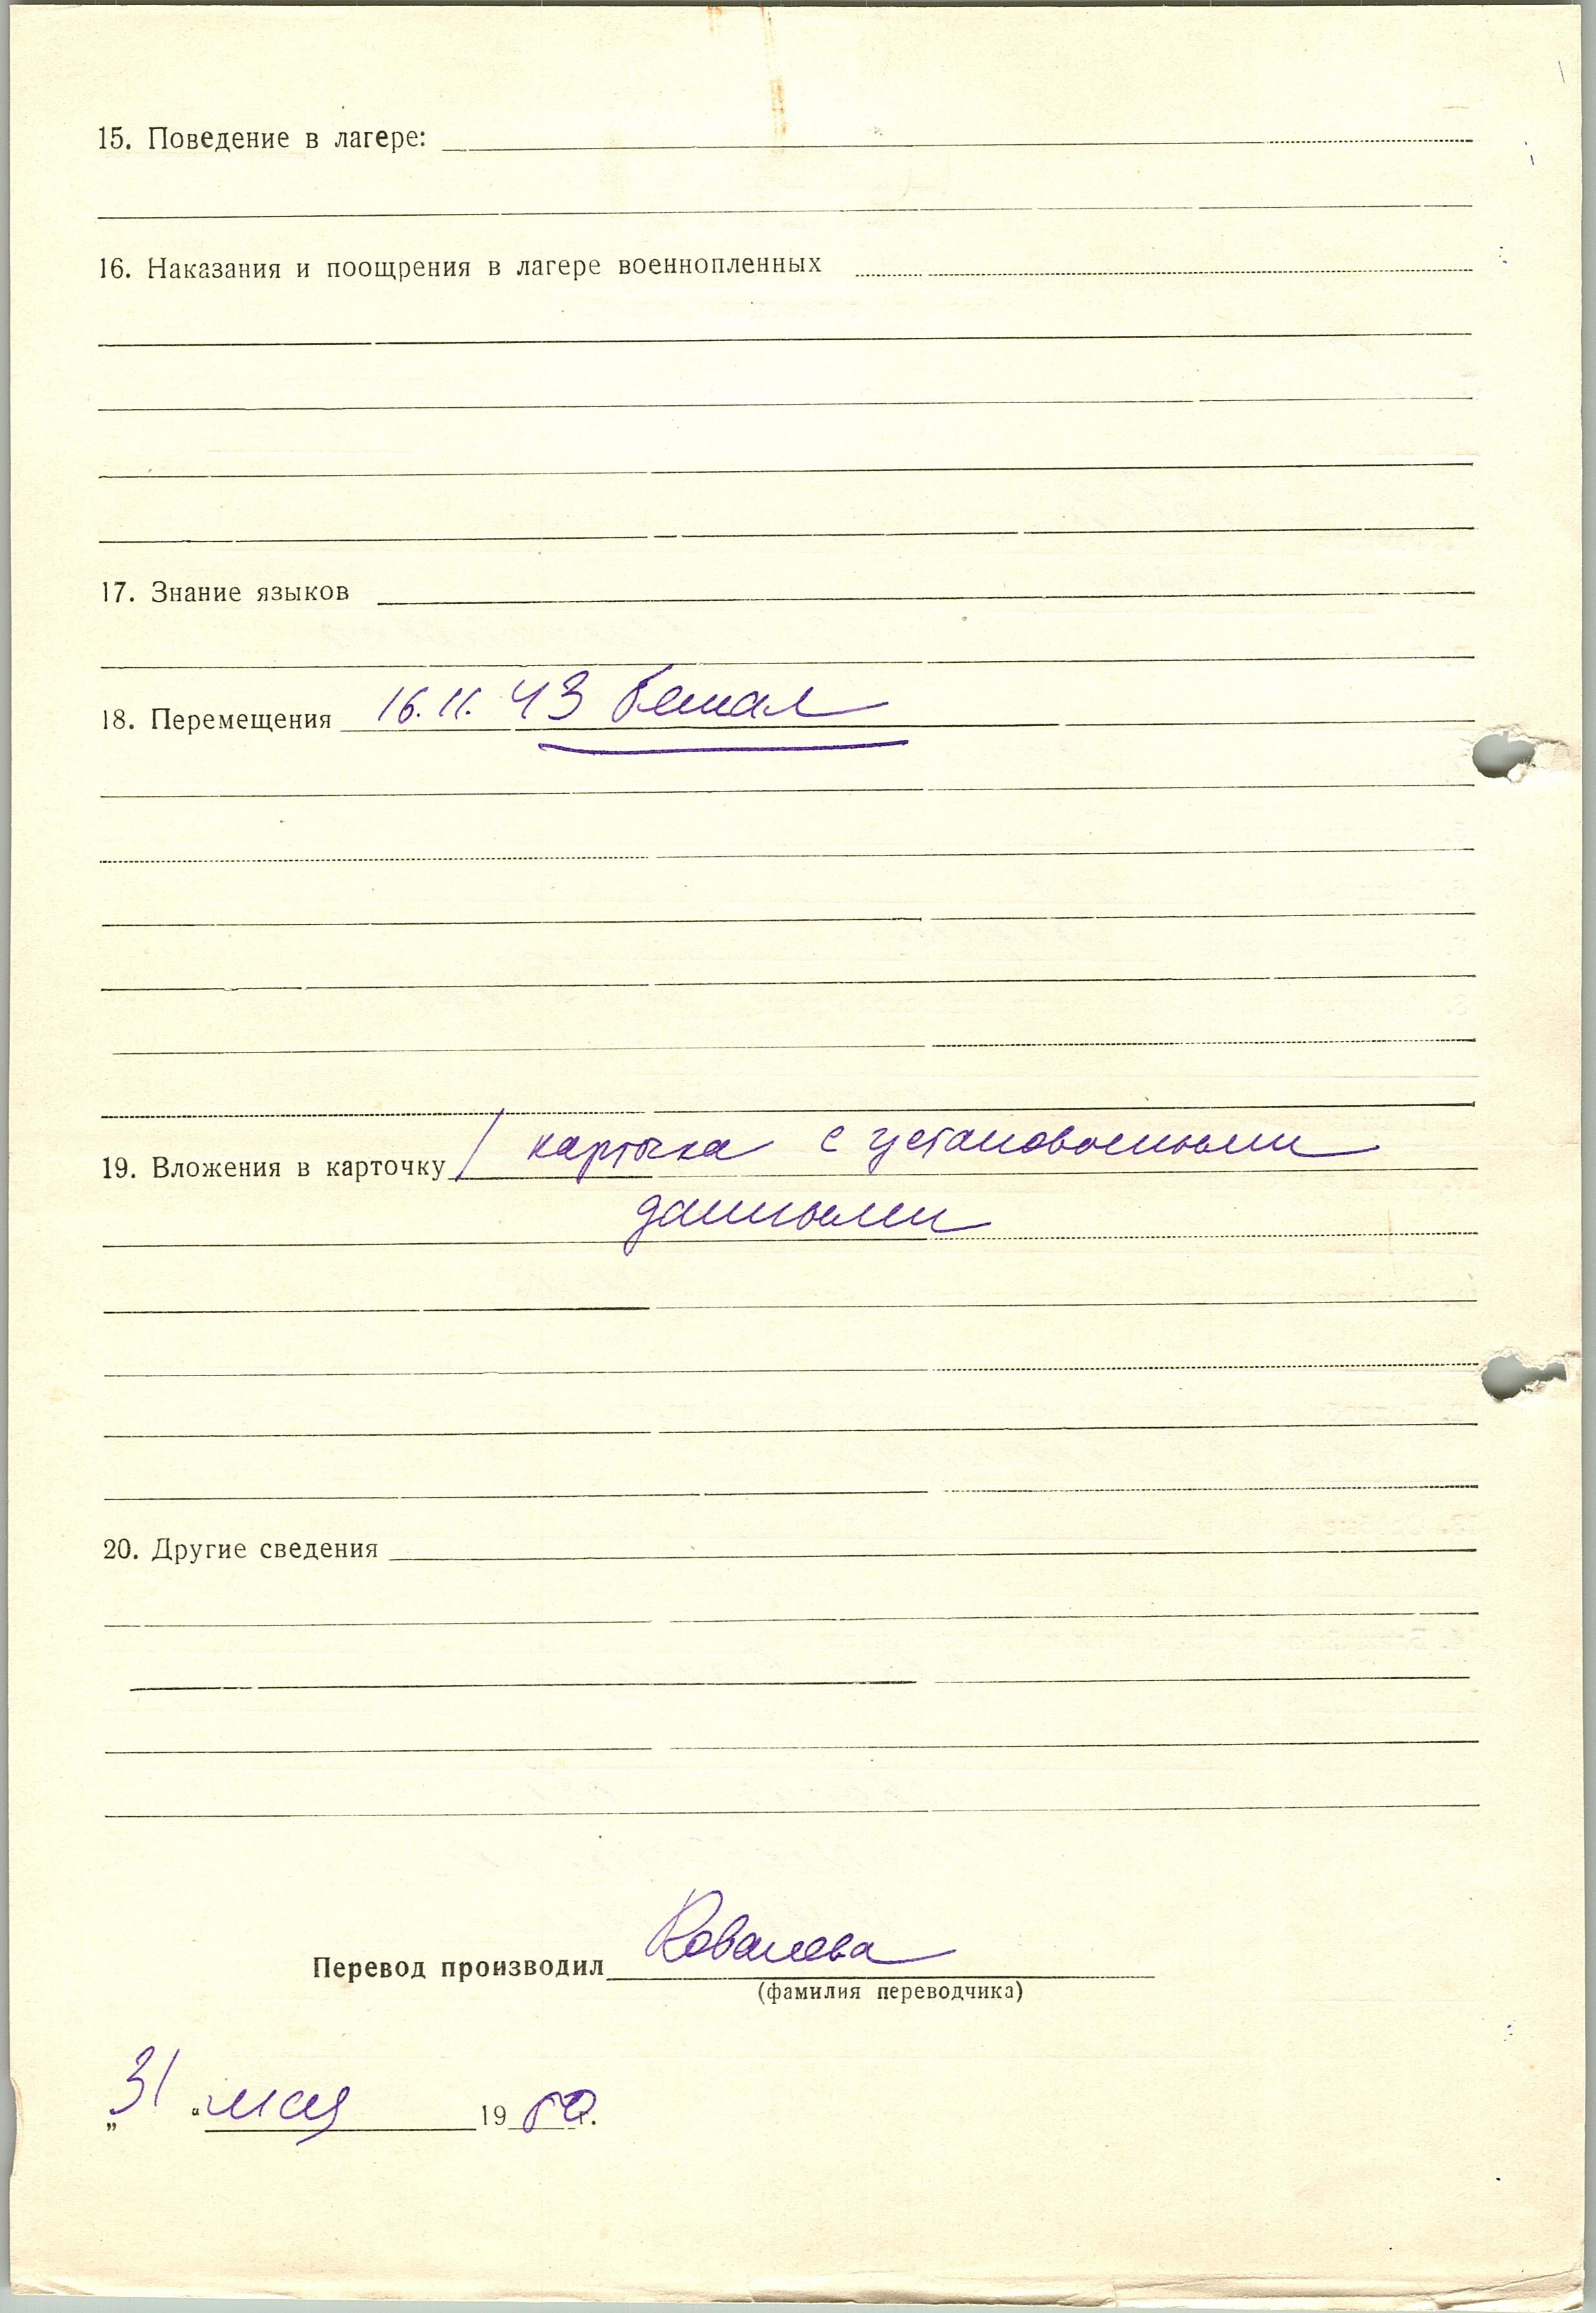 15. Поведение в лагере:
16. Наказания и поощрения в лагере военнопленных
17. Знание языков
18. Перемещения 16.11.43 бежал
19. Вложения в карточку / карточка с установочными
данными
20. Другие сведения
Перевод производил Ковалева
(фамилия переводчика)
„31“ мая 1950г.